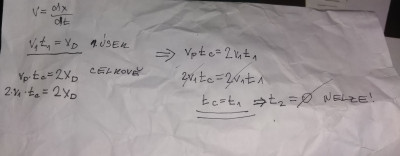 V = dx/dt
v₁t₁ = x_D 1. ÚSEK
v_p·t_c = 2x_D CELKOVĚ
2·v₁·t_c = 2x_D
⇒ v_p t_c = 2v₁t₁
2v₁t_c = 2v₁t₁
t_c = t₁ ⇒ t₂ = ∅ NELZE!